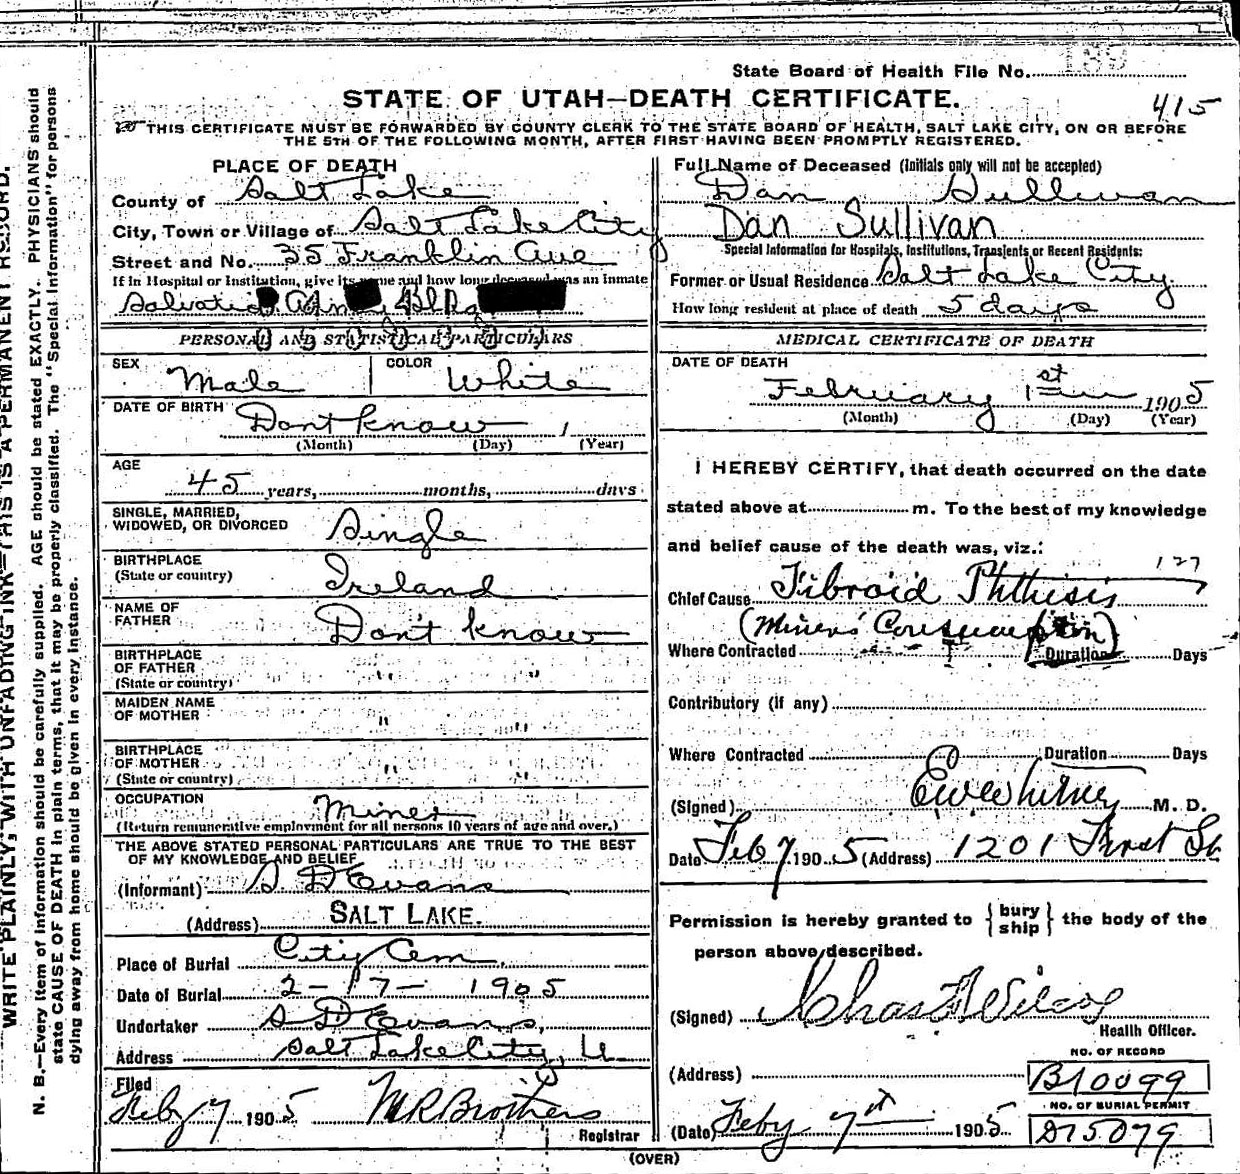 State Board of Health File No. 189
STATE OF UTAH—DEATH CERTIFICATE.
415
THIS CERTIFICATE MUST BE FORWARDED BY COUNTY CLERK TO THE STATE BOARD OF HEALTH, SALT LAKE CITY, ON OR BEFORE
THE 5TH OF THE FOLLOWING MONTH, AFTER FIRST HAVING BEEN PROMPTLY REGISTERED.
PLACE OF DEATH
County of Salt Lake
City, Town or Village of Salt Lake City
Street and No. 35 Franklin Ave
If in Hospital or Institution, give its name and how long deceased was an inmate
Salvation Army Bldg
PERSONAL AND STATISTICAL PARTICULARS
SEX Male COLOR White
DATE OF BIRTH Dont know 1
(Month) (Day) (Year)
AGE
45 years, months, days
SINGLE, MARRIED,
WIDOWED, OR DIVORCED Single
BIRTHPLACE
(State or country) Ireland
NAME OF
FATHER Don't know
BIRTHPLACE
OF FATHER
(State or country) " "
MAIDEN NAME
OF MOTHER " "
BIRTHPLACE
OF MOTHER
(State or country) " "
OCCUPATION Miner
(Return remunerative employment for all persons 10 years of age and over.)
THE ABOVE STATED PERSONAL PARTICULARS ARE TRUE TO THE BEST
OF MY KNOWLEDGE AND BELIEF
(Informant) S D Evans
(Address) SALT LAKE.
Place of Burial City Cem.
Date of Burial 2-17- 1905
Undertaker S D Evans,
Address Salt Lake City, U.
Filed
Feby 7 1905 M R Brothers
Registrar
Full Name of Deceased (Initials only will not be accepted)
Dan Sullivan
Dan Sullivan
Special Information for Hospitals, Institutions, Transients or Recent Residents:
Former or Usual Residence Salt Lake City
How long resident at place of death 5 days
MEDICAL CERTIFICATE OF DEATH
DATE OF DEATH
February 1st 1905
(Month) (Day) (Year)
I HEREBY CERTIFY, that death occurred on the date
stated above at m. To the best of my knowledge
and belief cause of the death was, viz.:
127
Chief Cause Fibroid Phthisis
(Miners' Consumption)
Where Contracted Duration Days
Contributory (if any)
Where Contracted Duration Days
(Signed) E W Whitney M. D.
Date Feb 7 1905 (Address) 1201 First St
Permission is hereby granted to {bury ship} the body of the
person above described.
(Signed) Chas F Wilcox
Health Officer.
NO. OF RECORD
(Address) B10099
NO. OF BURIAL PERMIT
(Date) Feby 7th 1905 D15079
(OVER)
WRITE PLAINLY, WITH UNFADING INK—THIS IS A PERMANENT RECORD.
N. B.—Every item of information should be carefully supplied. AGE should be stated EXACTLY. PHYSICIANS should
state CAUSE OF DEATH in plain terms, that it may be properly classified. The "Special Information" for persons
dying away from home should be given in every instance.